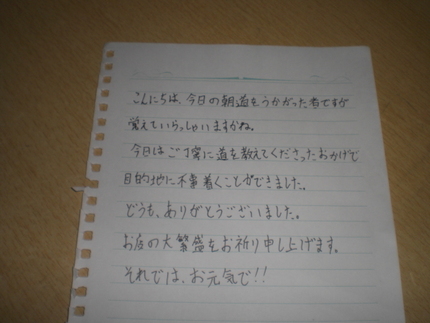 こんにちは、今日の朝道をうかがった者ですが
覚えていらっしゃいますかね。
今日はご丁寧に道を教えてくださったおかげで
目的地に不事着くことができました。
どうも、ありがとうございました。
お店の大繁盛をお祈り申し上げます。
それでは、お元気で!!